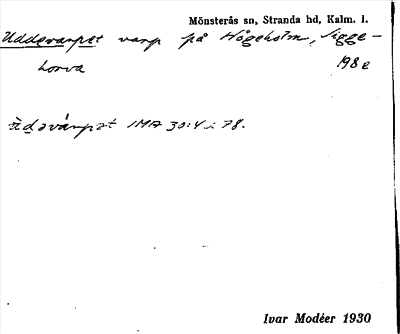 Mönsterås sn, Stranda hd, Kalm. l.
Uddevarpet varp på Högeholm, Sigge-
horva 198 e
IMA 30:4 s 78.
Ivar Modéer 1930